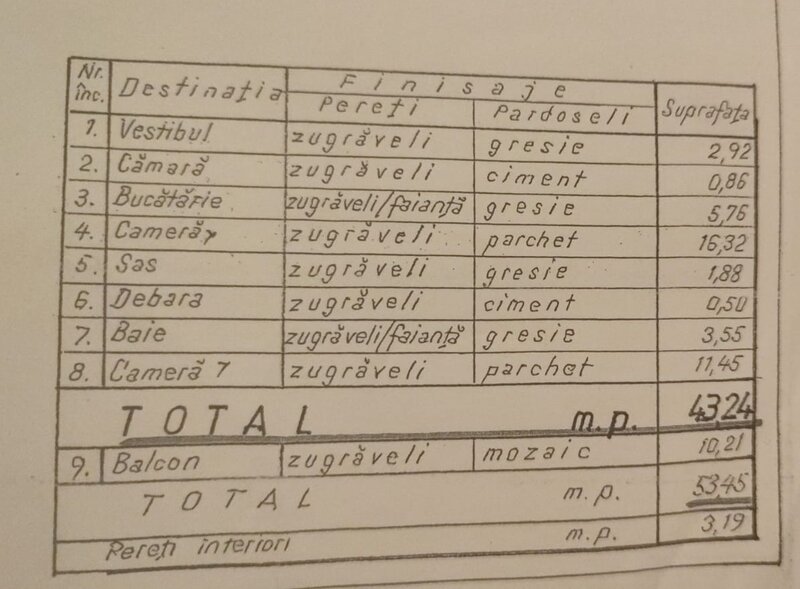 Nr. înc. Destinația Finisaje Suprafața
Pereți Pardoseli
1. Vestibul zugrăveli gresie 2,92
2. Cămară zugrăveli ciment 0,86
3. Bucătărie zugrăveli/faianță gresie 5,76
4. Cameră zugrăveli parchet 16,32
5. Sas zugrăveli gresie 1,88
6. Debara zugrăveli ciment 0,50
7. Baie zugrăveli/faianță gresie 3,55
8. Cameră zugrăveli parchet 11,45
TOTAL m.p. 43,24
9. Balcon zugrăveli mozaic 10,21
TOTAL m.p. 53,45
Pereți interiori m.p. 3,19